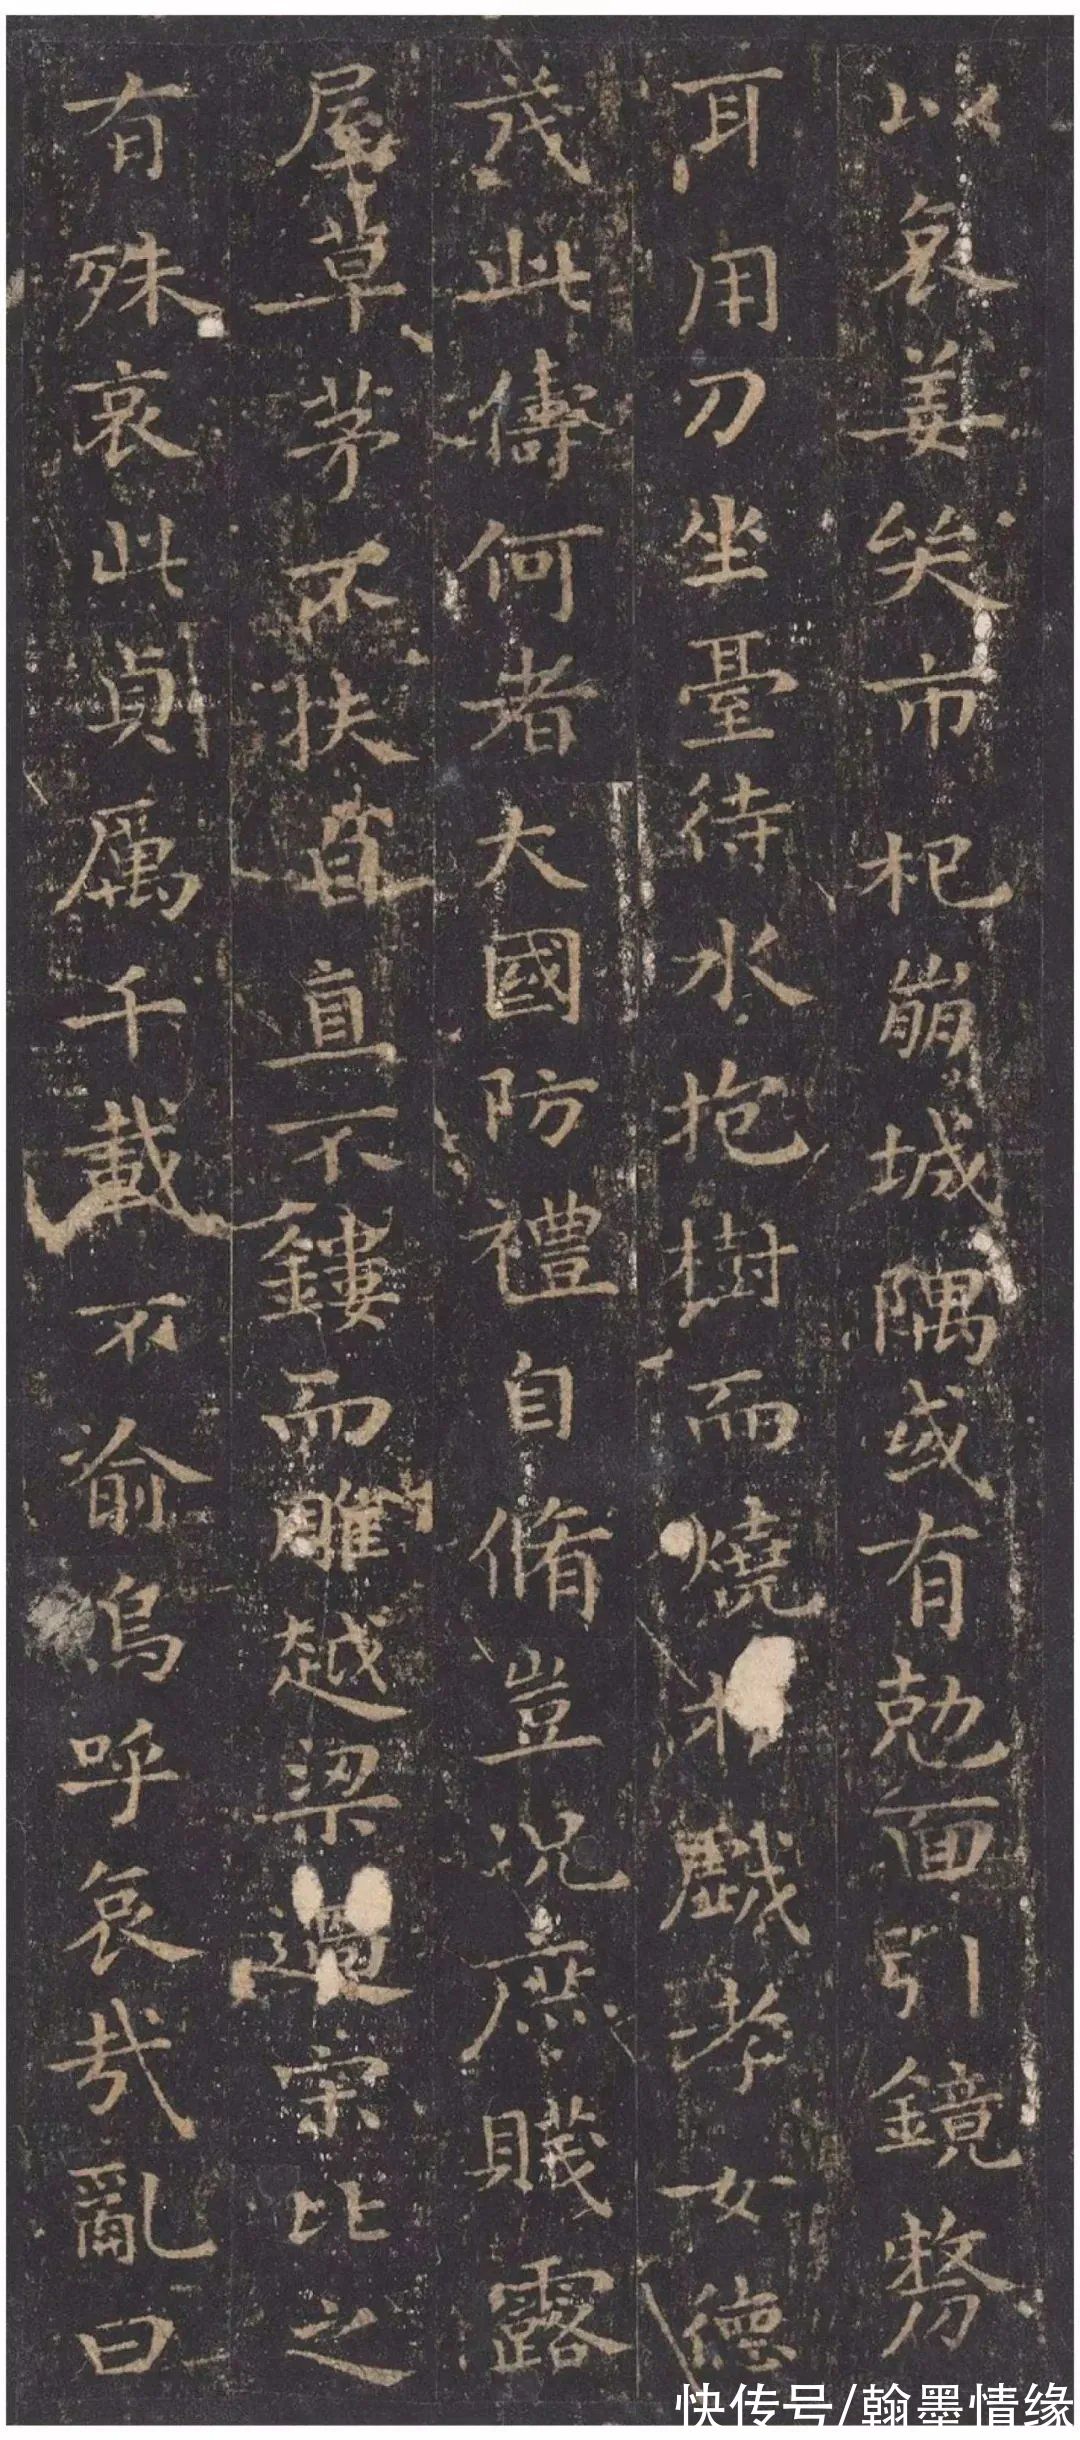 以哀姜哭市杞崩城隅或有勊面引鏡剺
耳用刀坐臺待水抱樹而燒 戲孝女德
茂此儔何者大國防禮自脩豈況庶賤露
屋草茅不扶自直不鏤而雕越梁過宋比之
有殊哀此貞厲千載不渝嗚呼哀哉亂曰
快传号/翰墨情缘